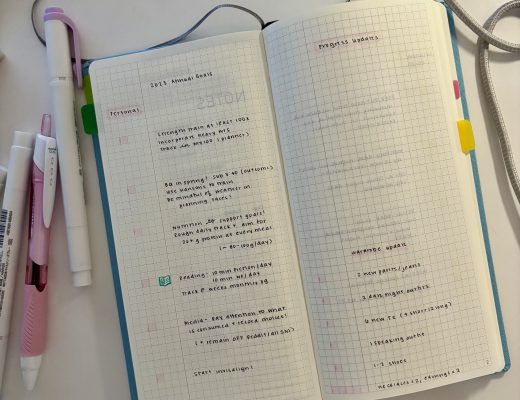 2025 Annual Goals
Personal
Strength train at least 100x
Incorporate heavy wts
Track in my100 (planner)
BQ in spring? Sub 3:40 (outcome)
Use Hansons to train
Be mindful of weather in
planning races!
Nutrition to support goals!
Rough daily track + aim for
20+ g protein at every meal
(~80-100g/day)
Reading: 10 min fiction/day
10 min NF/day
Track + access monthly
Media - Pay attention to what
is consumed + record choices!
(* remain off Reddit/all SM)
Start Invisalign!
NOTES
Progress Updates
Wardrobe update
2 new pants/jeans
2 date night outfits
6 new TS (4 short + 2 long)
1 speaking outfit
1-2 shoes
necklaces x2, earrings x 2